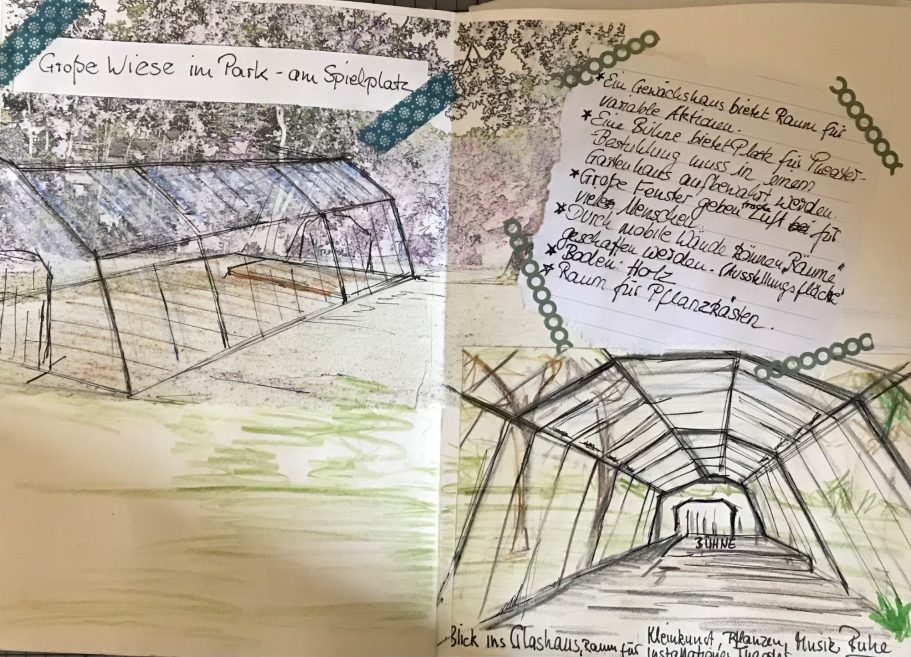 Große Wiese im Park - am Spielplatz
* Ein Gewächshaus bietet Raum für
variable Aktionen.
* Eine Bühne bietet Platz für Theater.
Bestuhlung muss in einem
Gartenhaus aufbewahrt werden.
* Große Fenster geben frische Luft für
viele Menschen
* Durch mobile Wände können "Räume"
geschaffen werden. (Ausstellungsfläche)
* Boden: Holz
* Raum für Pflanzkästen.
BÜHNE
Blick ins Glashaus, Raum für Kleinkunst, Pflanzen, Musik, Ruhe
Installationen, Theater